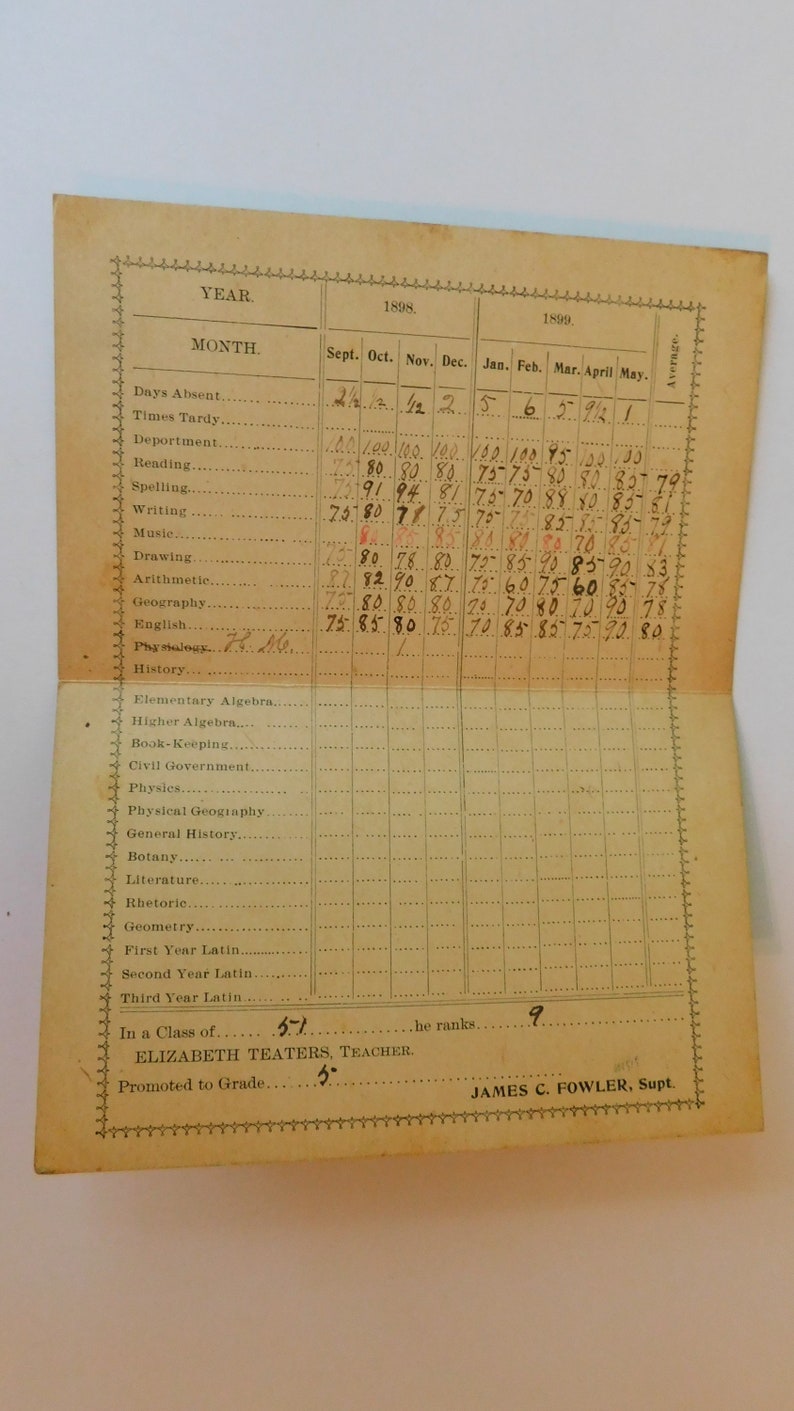 YEAR. 1898. 1899.
MONTH. Sept. Oct. Nov. Dec. Jan. Feb. Mar. April May. Average.
Days Absent 2½ ½ ½ 2 5 6 5 9½ 1
Times Tardy
Deportment 100 100 100 100 100 100 95 100 100
Reading 75 80 80 80 75 75 80 80 85 79
Spelling 75 91 94 81 75 70 88 80 85 81
Writing 75 80 78 75 75 75 85 85 85 79
Music 85 85 80 80 80 70 85 81
Drawing 75 80 78 80 75 85 90 85 90 83
Arithmetic 87 82 90 87 75 60 75 60 85 78
Geography 75 80 86 86 70 70 80 70 90 78
English 75 85 80 75 70 85 85 75 90 80
Physiology. H. M. 1
History
Elementary Algebra
Higher Algebra
Book-Keeping
Civil Government
Physics
Physical Geography
General History
Botany
Literature
Rhetoric
Geometry
First Year Latin
Second Year Latin
Third Year Latin
In a Class of 57 he ranks 9
ELIZABETH TEATERS, TEACHER.
Promoted to Grade 5
JAMES C. FOWLER, Supt.